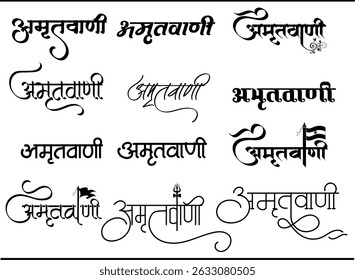 अमृतवाणी अमृतवाणी अमृतवाणी
अमृतवाणी अमृतवाणी अमृतवाणी
अमृतवाणी अमृतवाणी अमृतवाणी
अमृतवाणी अमृतवाणी अमृतवाणी
shutterstock.com · 2633080505